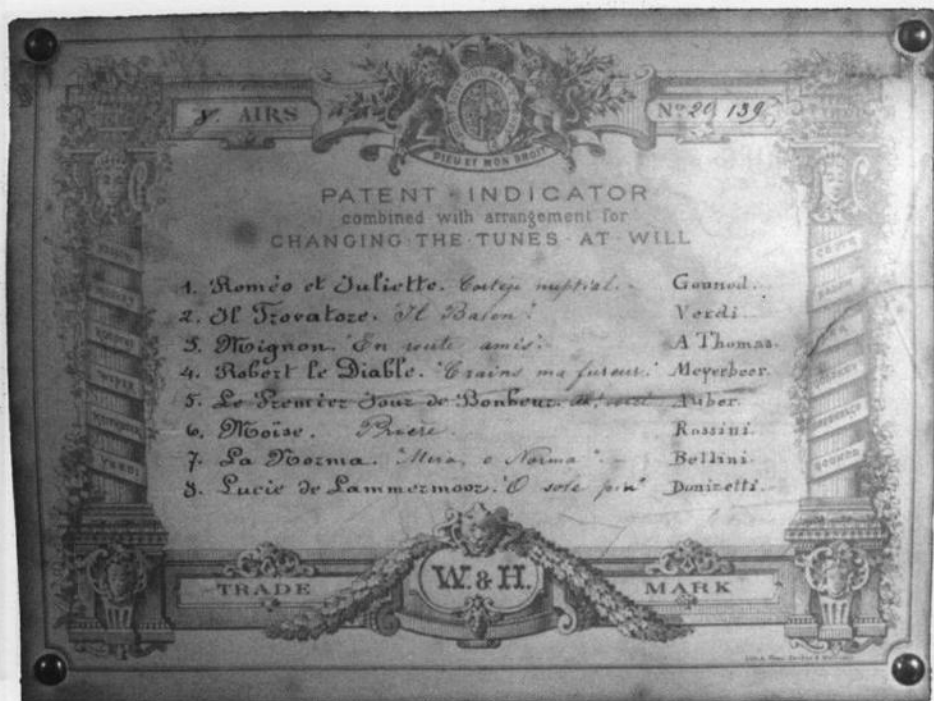 AIRS
Nº 20,139
DIEU ET MON DROIT
PATENT - INDICATOR
combined with arrangement for
CHANGING · THE · TUNES · AT · WILL
1. Roméo et Juliette. nuptial. Gounod.
2. Il Trovatore. "Il Balen" Verdi.
3. Mignon. "En route amis". A Thomas.
4. Robert le Diable. "Crains ma fureur." Meyerbeer.
5. Le Premier Jour de Bonheur. Auber.
6. Moïse. Prière. Rossini.
7. La Norma. "Mira, o Norma". Bellini.
8. Lucie de Lammermoor. "O sole Donizetti.
VERDI
GOUNOD
TRADE
W. & H.
MARK